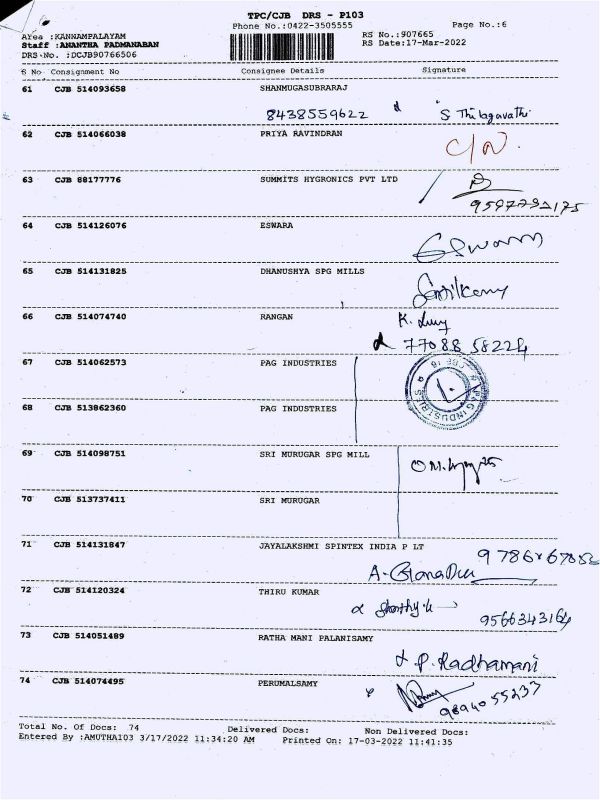 TPC/CJB DRS - P103
Phone No.:0422-3505555 Page No.:6
Area :KANNAMPALAYAM RS No.:907665
Staff :ANANTHA PADMANABAN RS Date:17-Mar-2022
DRS-No. :DCJB90766506
S No Consignment No Consignee Details Signature
61 CJB 514093658 SHANMUGASUBRARAJ
8438559622 S Thilagavathi
62 CJB 514066038 PRIYA RAVINDRAN
63 CJB 88177776 SUMMITS HYGRONICS PVT LTD
64 CJB 514126076 ESWARA
65 CJB 514131825 DHANUSHYA SPG MILLS
66 CJB 514074740 RANGAN
77088 58224
67 CJB 514062573 PAG INDUSTRIES
68 CJB 513862360 PAG INDUSTRIES
69 CJB 514098751 SRI MURUGAR SPG MILL
70 CJB 513737411 SRI MURUGAR
71 CJB 514131847 JAYALAKSHMI SPINTEX INDIA P LT
72 CJB 514120324 THIRU KUMAR
9566343164
73 CJB 514051489 RATHA MANI PALANISAMY
P. Radhamani
74 CJB 514074495 PERUMALSAMY
9894055237
Total No. Of Docs: 74 Delivered Docs: Non Delivered Docs:
Entered By :AMUTHA103 3/17/2022 11:34:20 AM Printed On: 17-03-2022 11:41:35